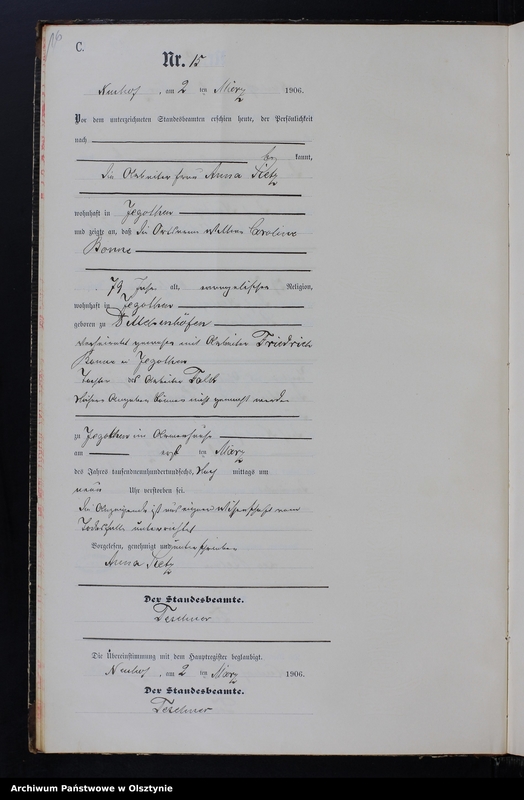 16
C.
Nr. 15
Neuhof, am 2 ten März 1906.
Vor dem unterzeichneten Standesbeamten erschien heute, der Persönlichkeit
nach
be kannt,
die Arbeiterfrau Anna Tietz
wohnhaft in Jegothen
und zeigte an, daß die Ortsarme Wittwe Caroline
Bonne
79 Jahre alt, evangelischer Religion,
wohnhaft in Jegothen
geboren zu
verheirathet gewesen mit Arbeiter Friedrich
Bonne in Jegothen
Tochter des Arbeiter Falk
Nähere Angaben können nicht gemacht werden
zu Jegothen im Armenhause
am ten März
des Jahres tausendneunhundertundsechs, Nach mittags um
neun Uhr verstorben sei.
Die Anzeigende ist aus eigener Wissenschaft vom
Todesfalle unterrichtet
Vorgelesen, genehmigt und unterschrieben
Anna Tietz
Der Standesbeamte.
Teschner
Die Übereinstimmung mit dem Hauptregister beglaubigt.
Neuhof, am 2 ten März 1906.
Der Standesbeamte.
Teschner
Archiwum Państwowe w Olsztynie